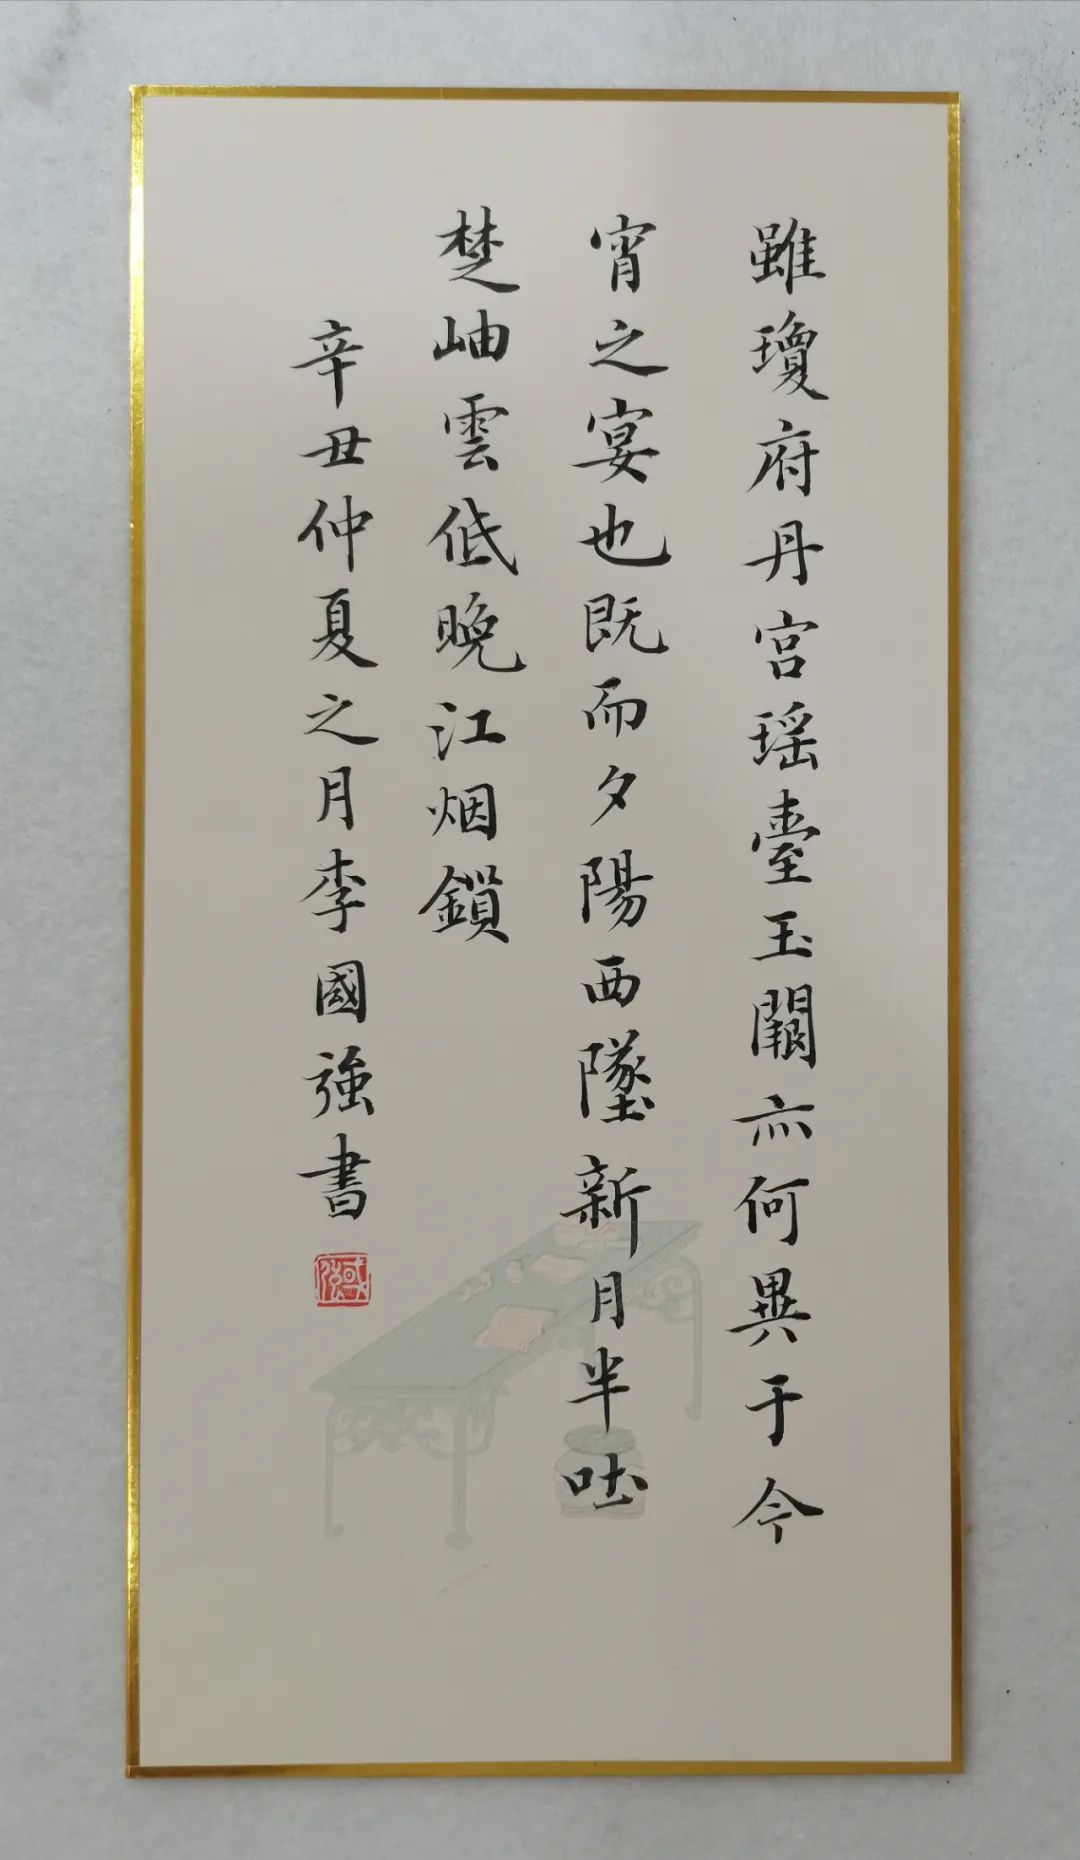 雖瓊府丹宮瑶臺玉闕亦何異于今
宵之宴也既而夕陽西墜新月半吐
楚岫雲低晚江烟鎖
辛丑仲夏之月李國強書
國強